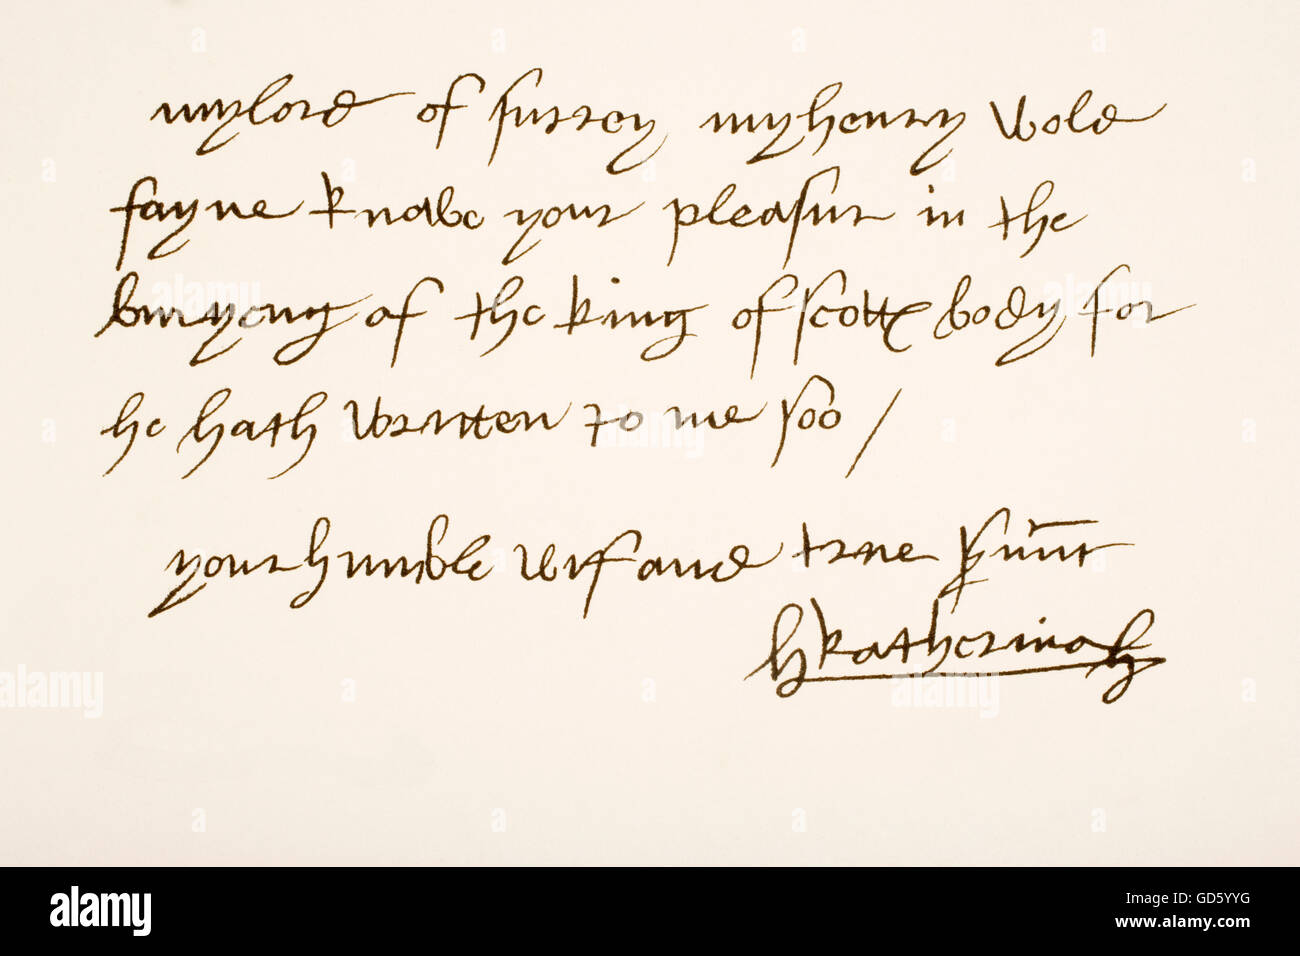 mylord of surrey myhenry wold
fayne knabe your pleasur in the
buryeng of the king of scottꝭ body for
he hath written to me soo /
your humble wif and true s̃uñt
katherina
alamy
Image ID: GD5YYG
www.alamy.com